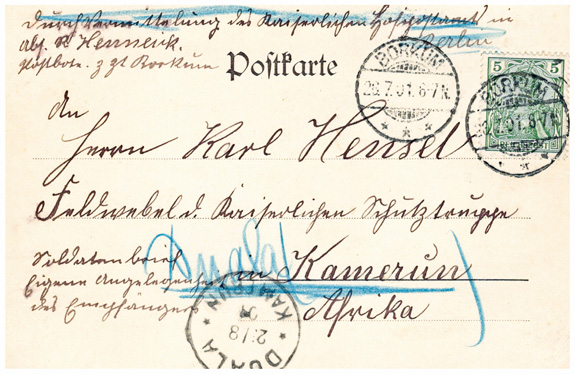 Durch Vermittelung des Kaiserlichen Hofpostamts in
Berlin
Abs. Henneck.
Postbote. z Zt Borkum
Postkarte
BORKUM
28.7.01.6-7N.
5 5
BORKUM
28.7.01.6-7N.
An
Herrn Karl Hensel
Feldwebel d. Kaiserlichen Schutztruppe
Soldatenbrief
Eigene Angelegenheit
des Empfängers
Duala
in Kamerun
Afrika
KAMERUN
21/8
01
DUALA